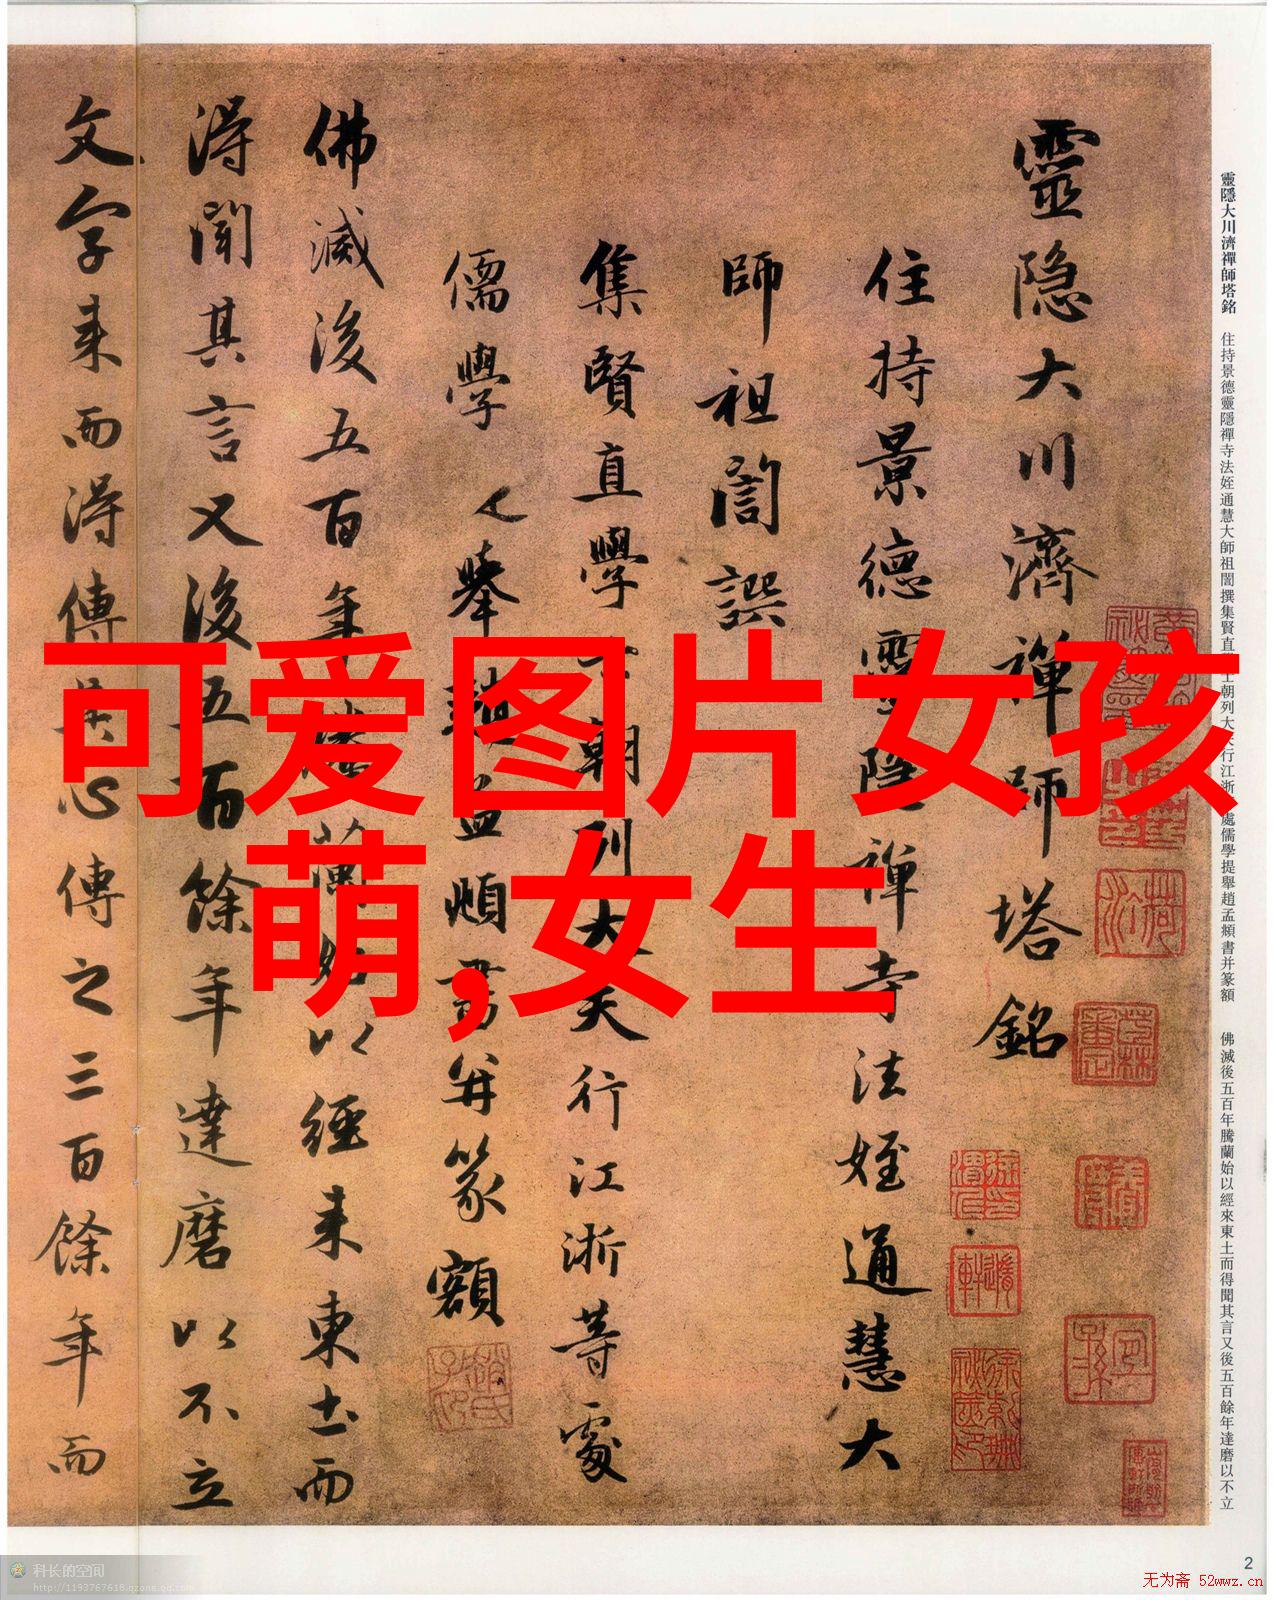 靈隐大川濟禪師塔銘
住持景德靈隐禪寺法姪通慧大
師祖誾譔
集賢直學士朝列大夫行江浙等處
儒學提舉趙孟頫書并篆額
佛滅後五百年騰蘭始以經来東土而
得聞其言又後五百餘年達磨以不立
文字来而得傳其心傳之三百餘年而
靈隱大川濟禪師塔銘 住持景德靈隱禪寺法姪通慧大師祖誾撰集賢直學士朝列大夫行江浙等處儒學提舉趙孟頫書并篆額 佛滅後五百年騰蘭始以經來東土而得聞其言又後五百餘年達磨以不立
可爱图片女孩
萌,女生
2
科长的空间
http://1193767618.qzone.qq.com
无为斋 52wwz.cn